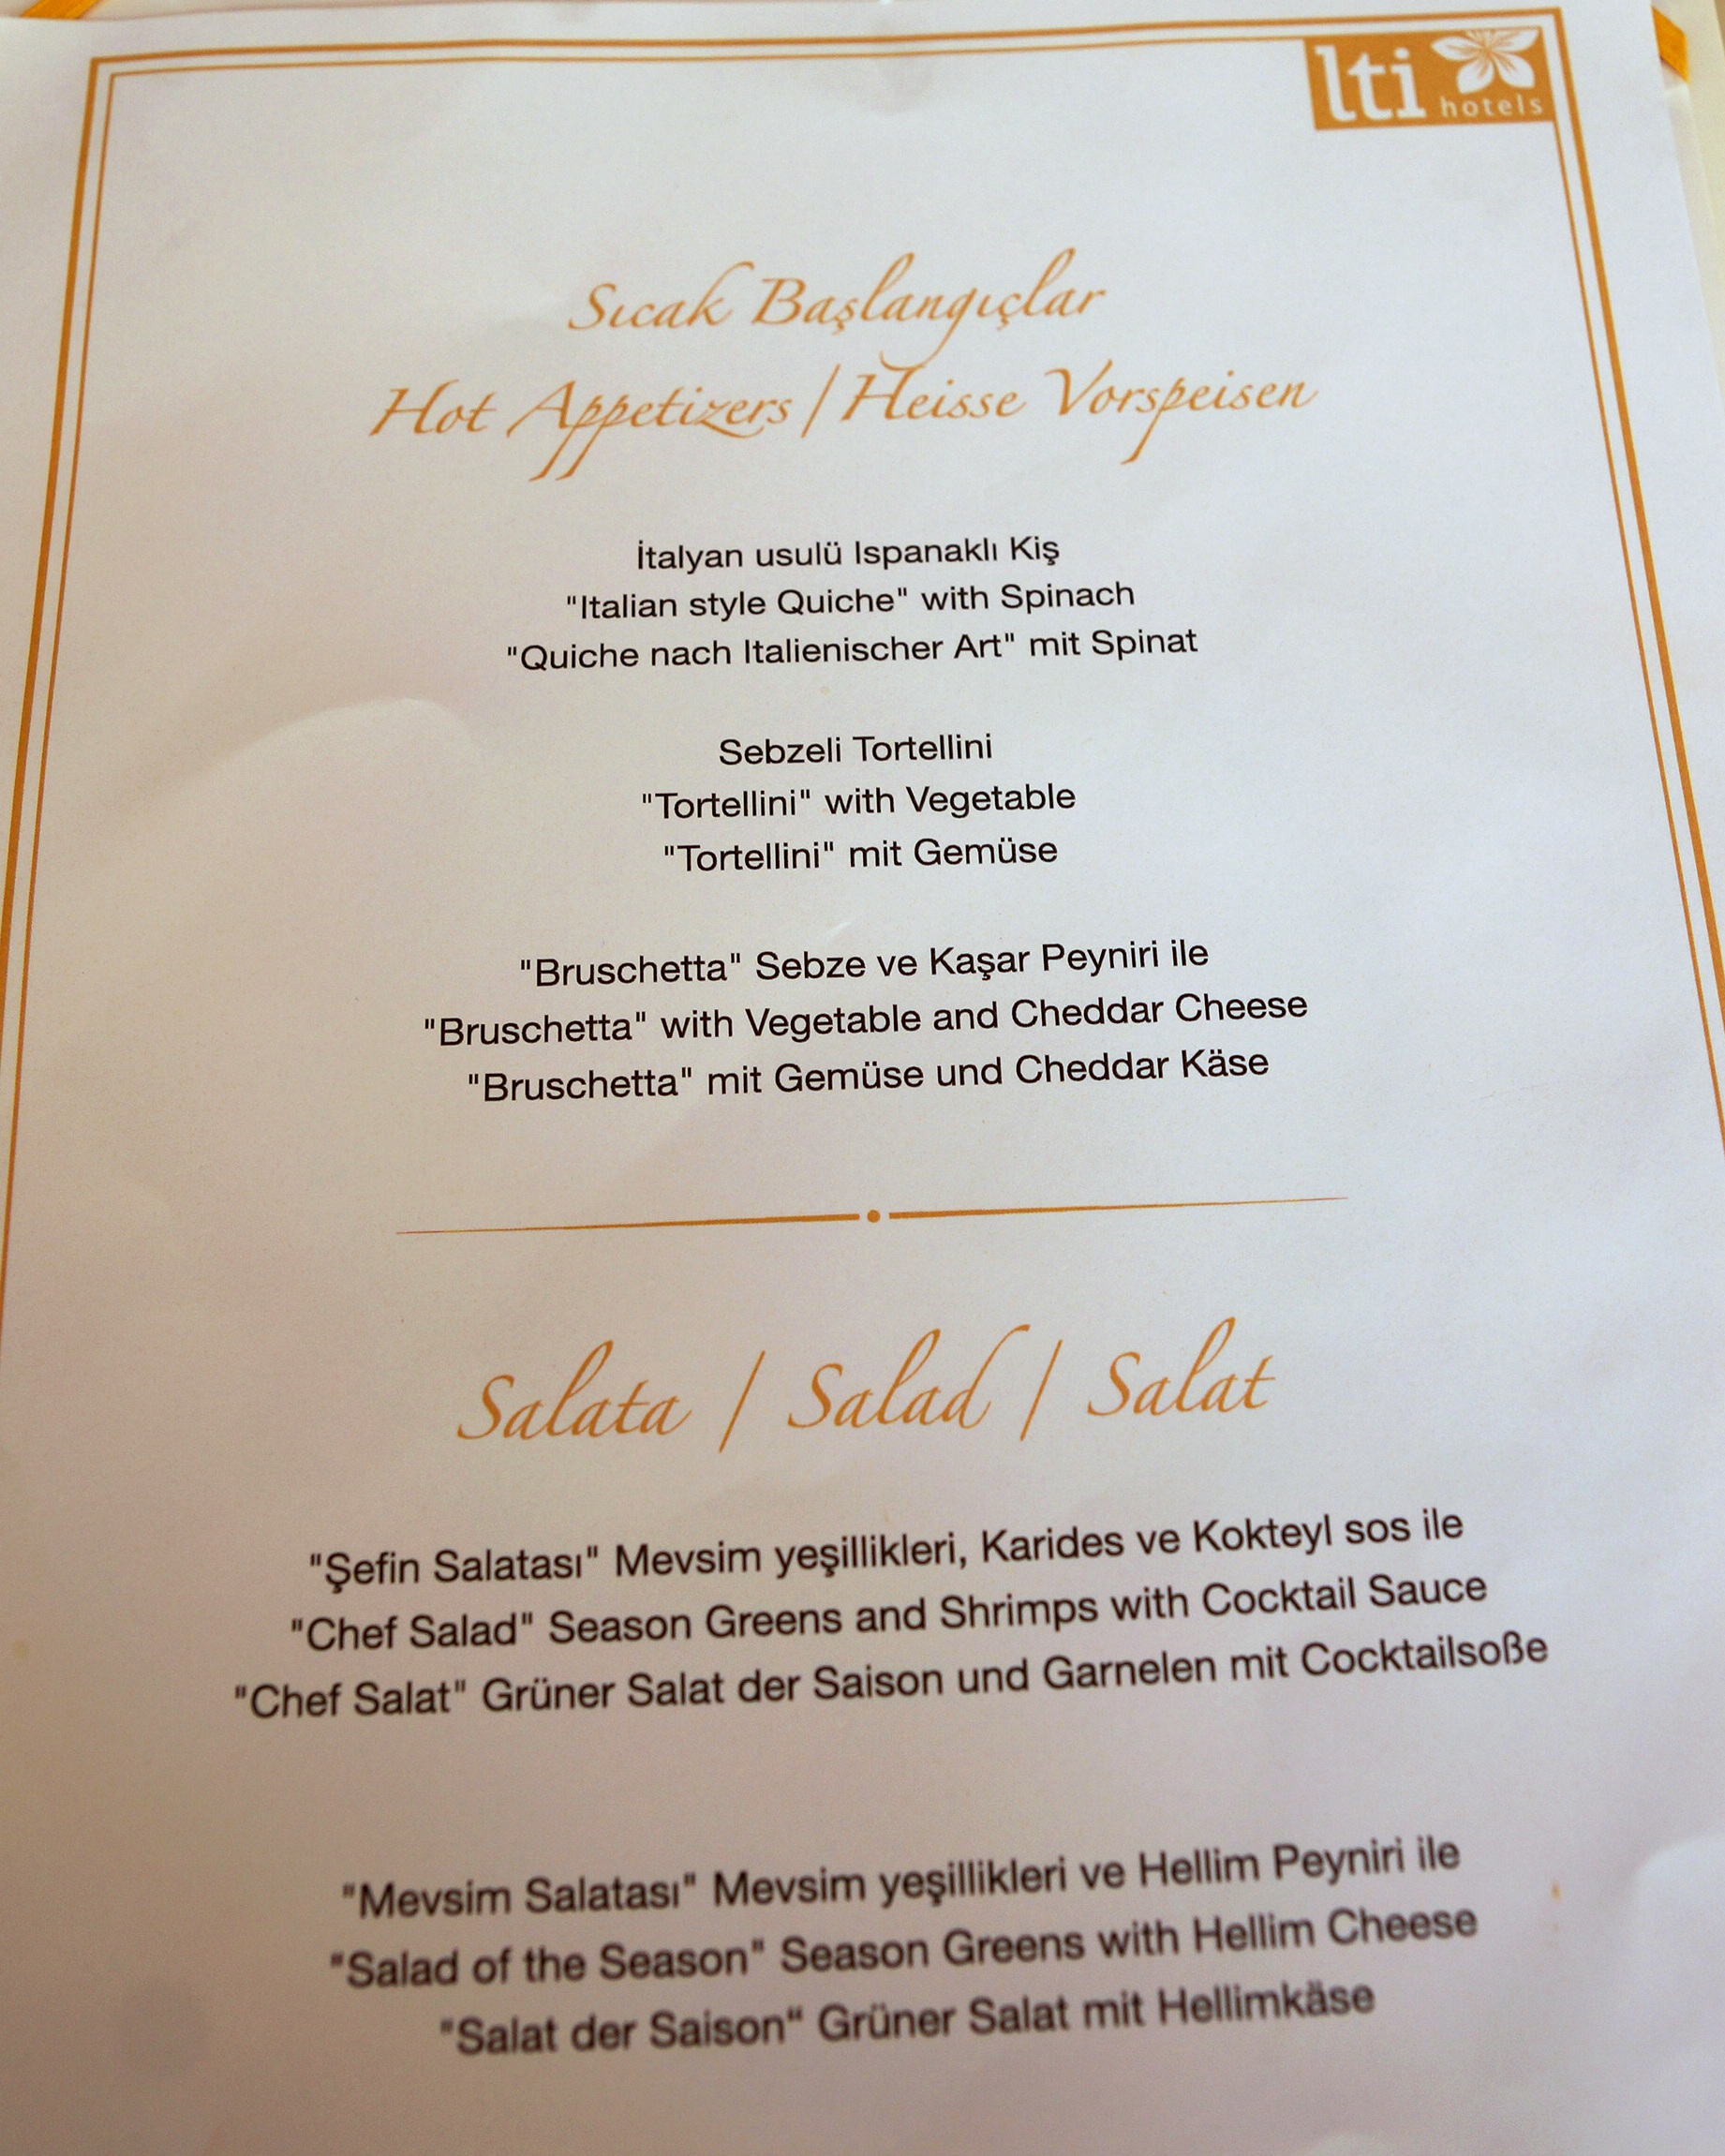 lti hotels
Sıcak Başlangıçlar
Hot Appetizers / Heisse Vorspeisen
İtalyan usulü Ispanaklı Kiş
"Italian style Quiche" with Spinach
"Quiche nach Italienischer Art" mit Spinat
Sebzeli Tortellini
"Tortellini" with Vegetable
"Tortellini" mit Gemüse
"Bruschetta" Sebze ve Kaşar Peyniri ile
"Bruschetta" with Vegetable and Cheddar Cheese
"Bruschetta" mit Gemüse und Cheddar Käse
Salata / Salad / Salat
"Şefin Salatası" Mevsim yeşillikleri, Karides ve Kokteyl sos ile
"Chef Salad" Season Greens and Shrimps with Cocktail Sauce
"Chef Salat" Grüner Salat der Saison und Garnelen mit Cocktailsoße
"Mevsim Salatası" Mevsim yeşillikleri ve Hellim Peyniri ile
"Salad of the Season" Season Greens with Hellim Cheese
"Salat der Saison“ Grüner Salat mit Hellimkäse